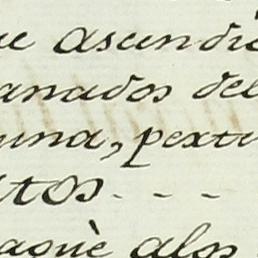 ue ascendiè
anados del
una, pextu
itos - - -
aquè alos